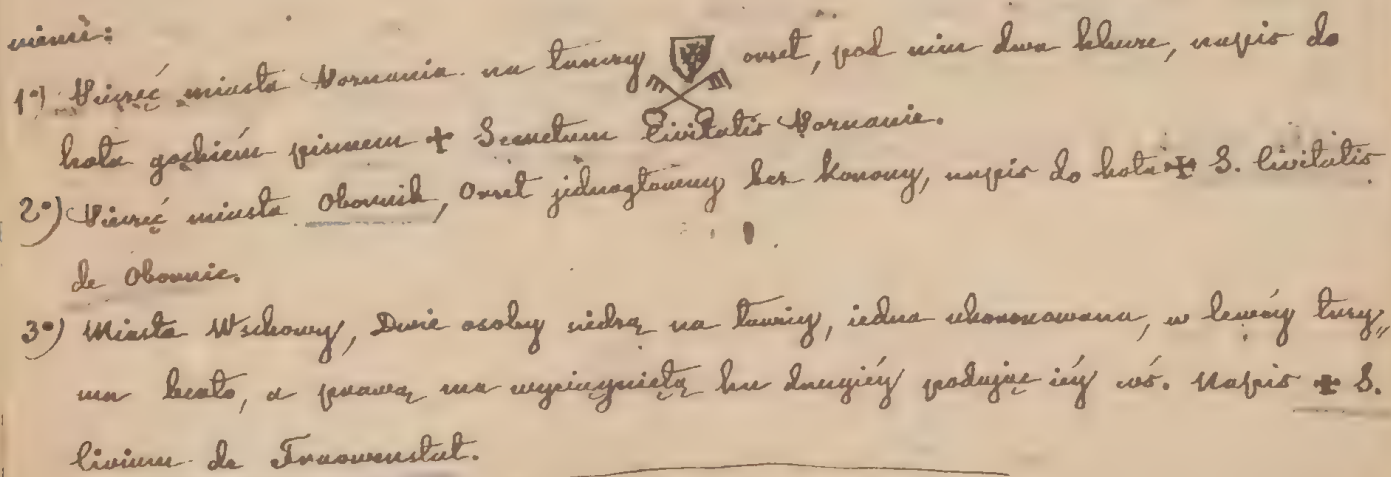 niemi:
1º) Pieczęć miasta Poznania na tarczy orzeł, pod nim dwa klucze, napis do
koła gockiém pismem + Secretum Civitatis Poznanie.
2º) Pieczęć miasta Obornik, Orzeł jednogłowny bez Korony, napis do koła + S. Civitatis
de Obornic.
3º) Miasta Wschowy, Dwie osoby siedzą na ławicy, iedna ukoronowana, w lewéy trzy„
ma berło, a prawą ma wyciągniętą ku drugiéy podając iéy coś. Napis + S.
Civium de Fraowenstat.